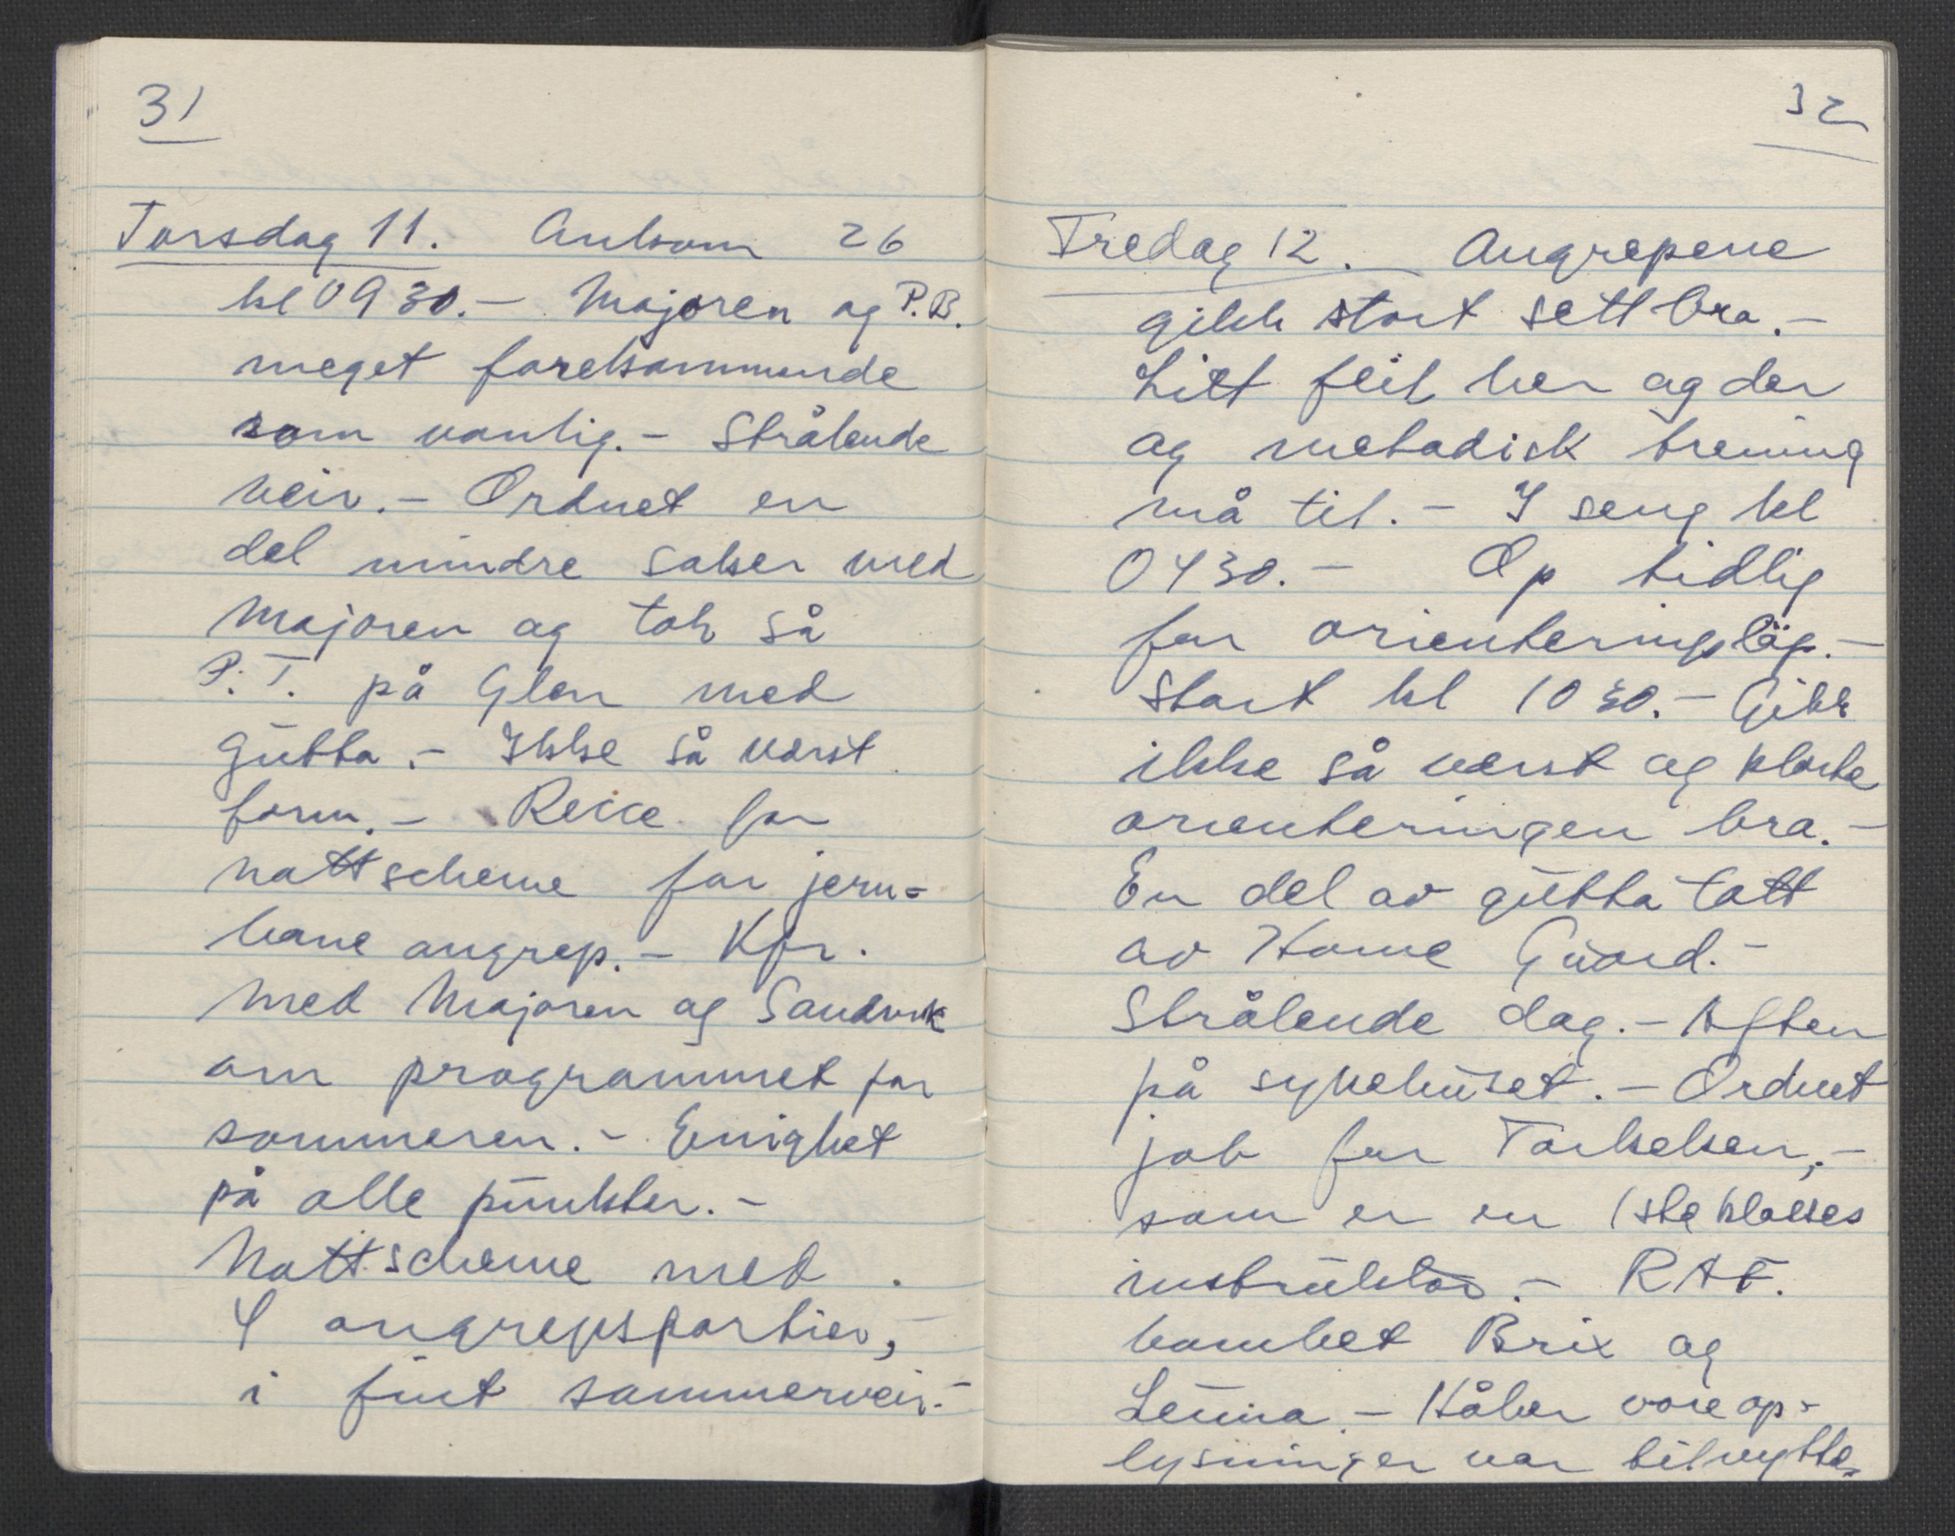 31
Torsdag 11. Ankom 26
kl 0930.- Majoren og P.B.
meget forekommende
som vanlig.- Strålende
veir.- Ordnet en
del mindre saker med
Majoren og tok så
P.T. på Glen med
gutta.- Ikke så værst
form.- Recce for
nattscheme for jern=
bane angrep.- Kfr.
med Majoren og Sandvik
om programmet for
sommeren.- Enighet
på alle punkter.-
Nattscheme med
4 angrepspartier,-
i fint sommerveir.-
32
Fredag 12. Angrepene
gikk stort sett bra.-
Litt feil her og der
og metodisk trening
må til.- I seng kl
0430.- Op tidlig
for orienteringsløp.-
Start kl 1030.- Gikk
ikke så værst og klarte
orienteringen bra.-
En del av gutta tatt
av Home Guard.-
Strålende dag.- Aften
på sykehuset.- Ordnet
job for Torkelsen,-
som er en 1ste klasses
instruktør.- RAF.
bombet Brix og
Leuna.- Håber våre op-
lysninger var til nytte.